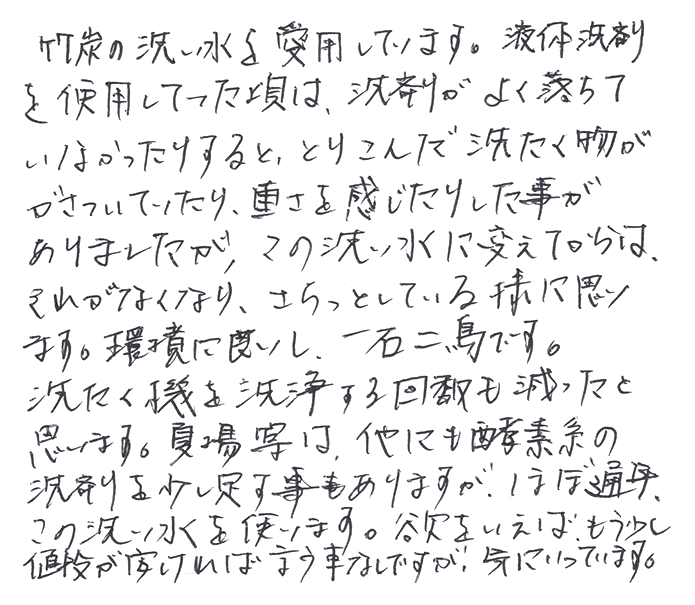 竹炭の洗い水を愛用しています。液体洗剤
を使用してった頃は、洗剤がよく落ちて
いなかったりすると、とりこんだ洗たく物が
がさついていたり、重さを感じたりした事が
ありましたが、この洗い水に変えてからは、
それがなくなり、さらっとしている様に思い
ます。環境に良いし、一石二鳥です。
洗たく機を洗浄する回数も減ったと
思います。夏場等は、他にも酵素系の
洗剤を少し足す事もありますが、ほぼ通年、
この洗い水を使います。欲をいえば、もう少し
値段が安ければ言う事なしですが、気にいっています。